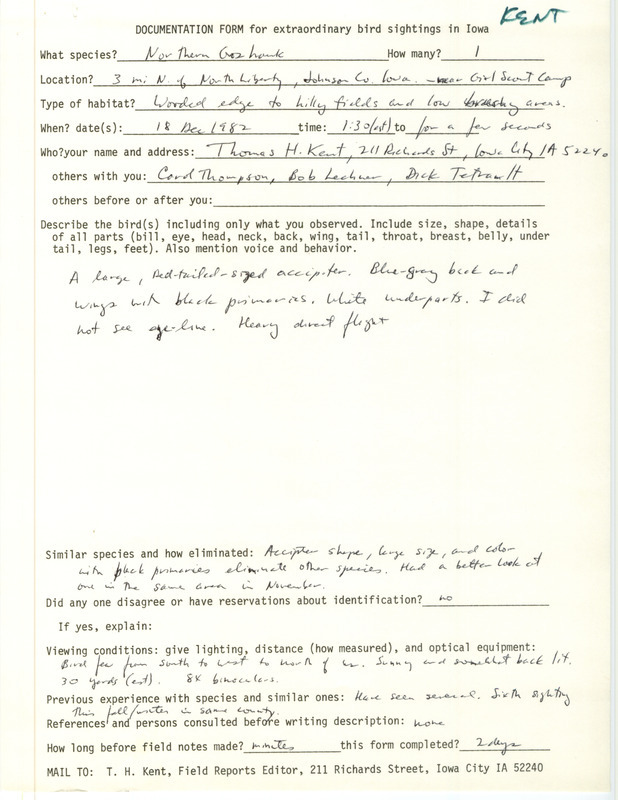 KENT
DOCUMENTATION FORM for extraordinary bird sightings in Iowa
What species? Northern Goshawk How many? 1
Location? 3 mi N. of North Liberty, Johnson Co. Iowa. - near Girl Scout Camp
Type of habitat? Wooded edge to hilly fields and low brushy areas.
When? date(s): 18 Dec 1982 time: 1:30 (est) to for a few seconds
Who?your name and address: Thomas H. Kent, 211 Richards St, Iowa City IA 52240
others with you: Carol Thompson, Bob Lechner, Dick Tetrault
others before or after you:
Describe the bird(s) including only what you observed. Include size, shape, details
of all parts (bill, eye, head, neck, back, wing, tail, throat, breast, belly, under
tail, legs, feet). Also mention voice and behavior.
A large, Red-tailed-sized accipiter. Blue-gray back and
wings with black primaries. White underparts. I did
not see eye-line. Heavy direct flight
Similar species and how eliminated: Accipiter shape, large size, and color
with black primaries eliminate other species. Had a better look at
one in the same area in November.
Did any one disagree or have reservations about identification? no
If yes, explain:
Viewing conditions: give lighting, distance (how measured), and optical equipment:
Bird flew from south to west to north of us. Sunny and somewhat back lit.
30 yards (est). 8X binoculars.
Previous experience with species and similar ones: Have seen several. Sixth sighting
this fall/winter in same county.
References and persons consulted before writing description: none
How long before field notes made? minutes this form completed? 2 days
MAIL TO: T. H. Kent, Field Reports Editor, 211 Richards Street, Iowa City IA 52240